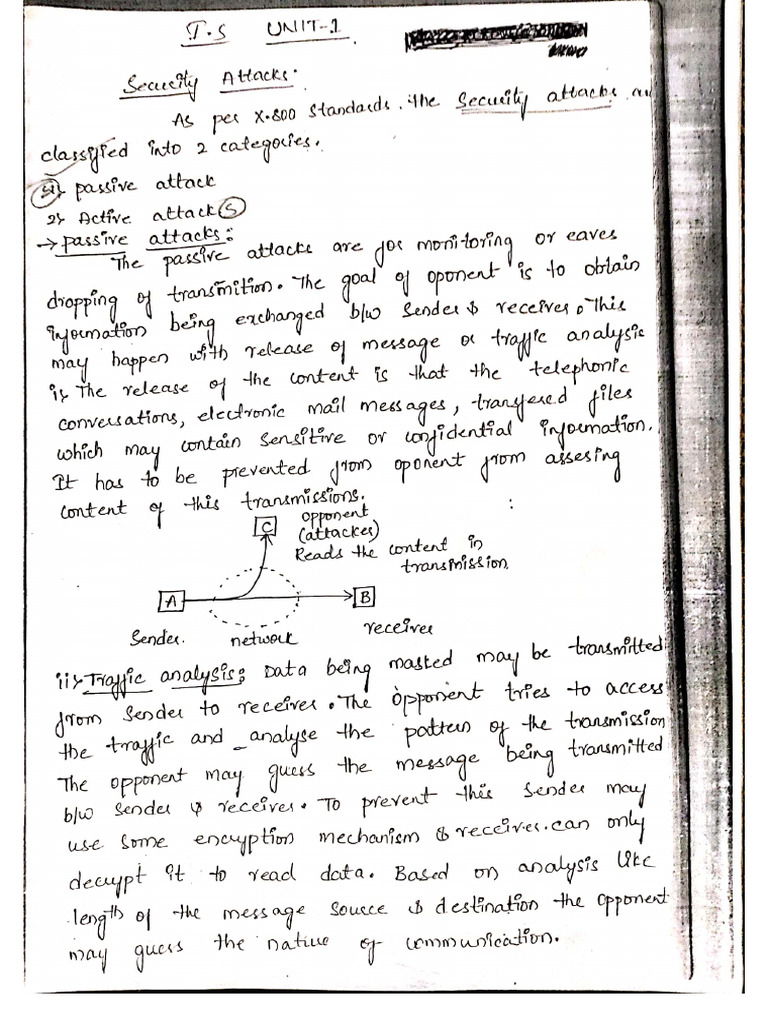 I.S UNIT-1
Security Attacks:
As per X.800 Standards. The Security attacks
classified into 2 categories.
1> passive attack
2> Active attack(s)
→ passive attacks:
The passive attacks are for monitoring or eaves
dropping of transmition. The goal of oponent is to obtain
information being exchanged b/w sender & receiver. This
may happen with release of message or traffic analysis
i> The release of the content is that the telephonic
conversations, electronic mail messages, transfered files
which may contain sensitive or confidential information.
It has to be prevented from oponent from assesing
content of this transmissions.
C opponent
(attacker)
Reads the content in
transmission.
A B
Sender. network receiver
ii> Traffic analysis: Data being masted may be transmitted
from sender to receiver. The opponent tries to access
the traffic and analyse the pattern of the transmission
The opponent may guess the message being transmitted
b/w sender & receiver. To prevent this sender may
use some encryption mechanism & receiver can only
decrypt it to read data. Based on analysis like
length of the message source & destination the opponent
may guess the native of communication.